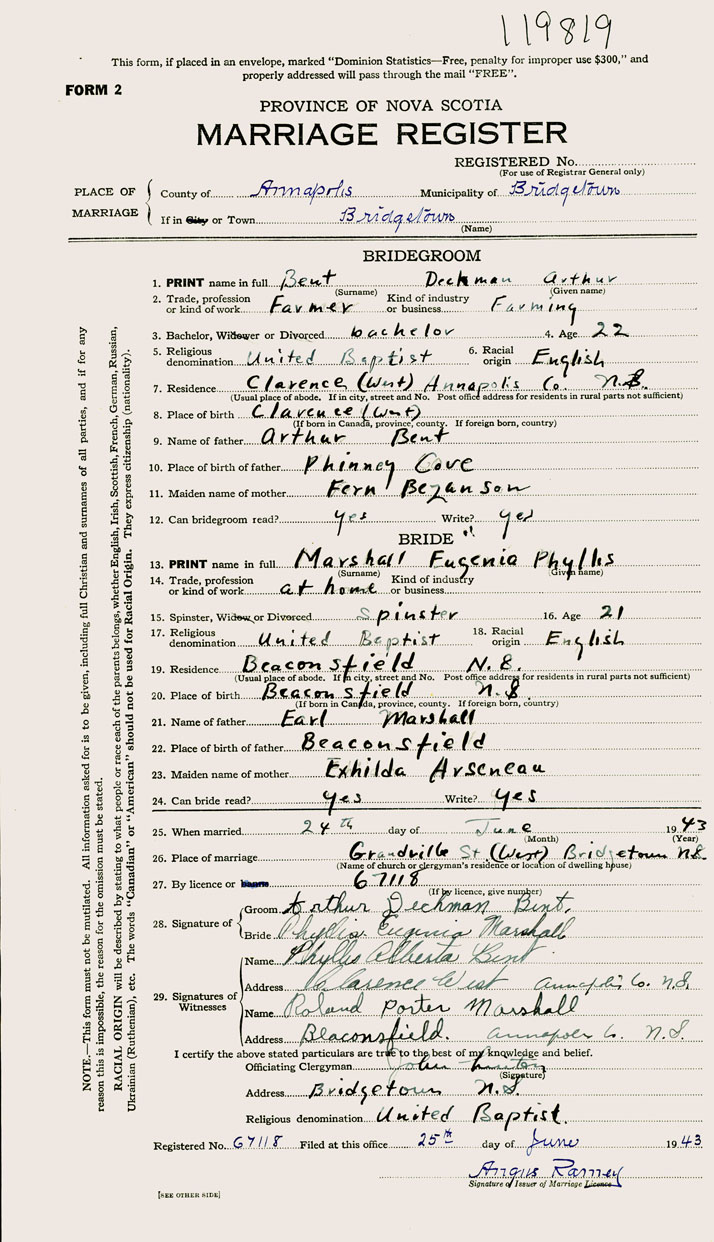 119819
This form, if placed in an envelope, marked "Dominion Statistics—Free, penalty for improper use $300," and
properly addressed will pass through the mail "FREE".
FORM 2
PROVINCE OF NOVA SCOTIA
MARRIAGE REGISTER
REGISTERED No.
(For use of Registrar General only)
PLACE OF MARRIAGE
County of Annapolis Municipality of Bridgetown
If in City or Town Bridgetown
(Name)
BRIDEGROOM
1. PRINT name in full Bent Deckman Arthur
(Surname) (Given name)
2. Trade, profession or kind of work Farmer Kind of industry or business Farming
3. Bachelor, Widower or Divorced bachelor 4. Age 22
5. Religious denomination United Baptist 6. Racial origin English
7. Residence Clarence (West) Annapolis Co. N.S.
(Usual place of abode. If in city, street and No. Post office address for residents in rural parts not sufficient)
8. Place of birth Clarence (West)
(If born in Canada, province, county. If foreign born, country)
9. Name of father Arthur Bent
10. Place of birth of father Phinney Cove
11. Maiden name of mother Fern Bezanson
12. Can bridegroom read? yes Write? yes
BRIDE
13. PRINT name in full Marshall Eugenia Phyllis
(Surname) (Given name)
14. Trade, profession or kind of work at home Kind of industry or business
15. Spinster, Widow or Divorced Spinster 16. Age 21
17. Religious denomination United Baptist 18. Racial origin English
19. Residence Beaconsfield N.S.
(Usual place of abode. If in city, street and No. Post office address for residents in rural parts not sufficient)
20. Place of birth Beaconsfield N.S.
(If born in Canada, province, county. If foreign born, country)
21. Name of father Earl Marshall
22. Place of birth of father Beaconsfield
23. Maiden name of mother Exhilda Arseneau
24. Can bride read? yes Write? yes
25. When married 24th day of June 1943
(Month) (Year)
26. Place of marriage Grandville St. (West) Bridgetown N.S.
(Name of church or clergyman's residence or location of dwelling house)
27. By licence or banns 67118
(If by licence, give number)
28. Signature of
Groom Arthur Deckman Bent.
Bride Phyllis Eugenia Marshall
29. Signatures of Witnesses
Name Phyllis Alberta Bent
Address Clarence West Annapolis Co. N.S.
Name Roland Porter Marshall
Address Beaconsfield. Annapolis Co. N.S.
I certify the above stated particulars are true to the best of my knowledge and belief.
Officiating Clergyman John
(Signature)
Address Bridgetown N.S.
Religious denomination United Baptist.
Registered No. 67118 Filed at this office 25th day of June 1943
Angus Ramey
Signature of Issuer of Marriage Licence
[SEE OTHER SIDE]
NOTE.—This form must not be mutilated. All information asked for is to be given, including full Christian and surnames of all parties, and if for any
reason this is impossible, the reason for the omission must be stated.
RACIAL ORIGIN will be described by stating to what people or race each of the parents belongs, whether English, Irish, Scottish, French, German, Russian,
Ukrainian (Ruthenian), etc. The words "Canadian" or "American" should not be used for Racial Origin. They express citizenship (nationality).